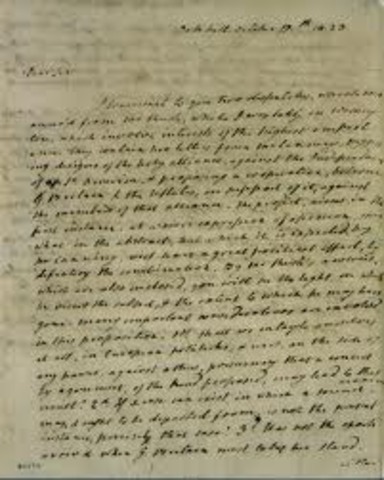 Oakhill October 17th 1823
Dear Sir
I transmit to you two despatches, which were
receiv'd from Mr Rush, while I was lately in Washing
ton, which involve interests of the highest import
ance. They contain two letters from Mr Canning, suggest
ing designs of the holy alliance, against the Independence
of So America, & proposing a cooperation, between
G Britain & the UStates, in support of it, against
the members of that alliance. The project, aims in the
first instance, at a mere expression of opinion, some
what in the abstract, but which it is expected by
Mr Canning, will have a great political effect, by
defeating the combination. By Mr Rush's answers,
which are also inclosed, you will see the light in which
he views the subject, & the extent to which he may have
gone. Many important considerations are involved
in this proposition. 1st Shall we entangle ourselves,
at all, in European politicks, & wars, on the side of
any power, against others, presuming that a concert
by agreement, of the kind proposed, may lead to that
result? 2d If a case can exist in which a sound maxim
may, & ought to be departed from, is not the present
instance, precisely that case? 3d Has not the epoch
arriv'd when G Britain must take her stand